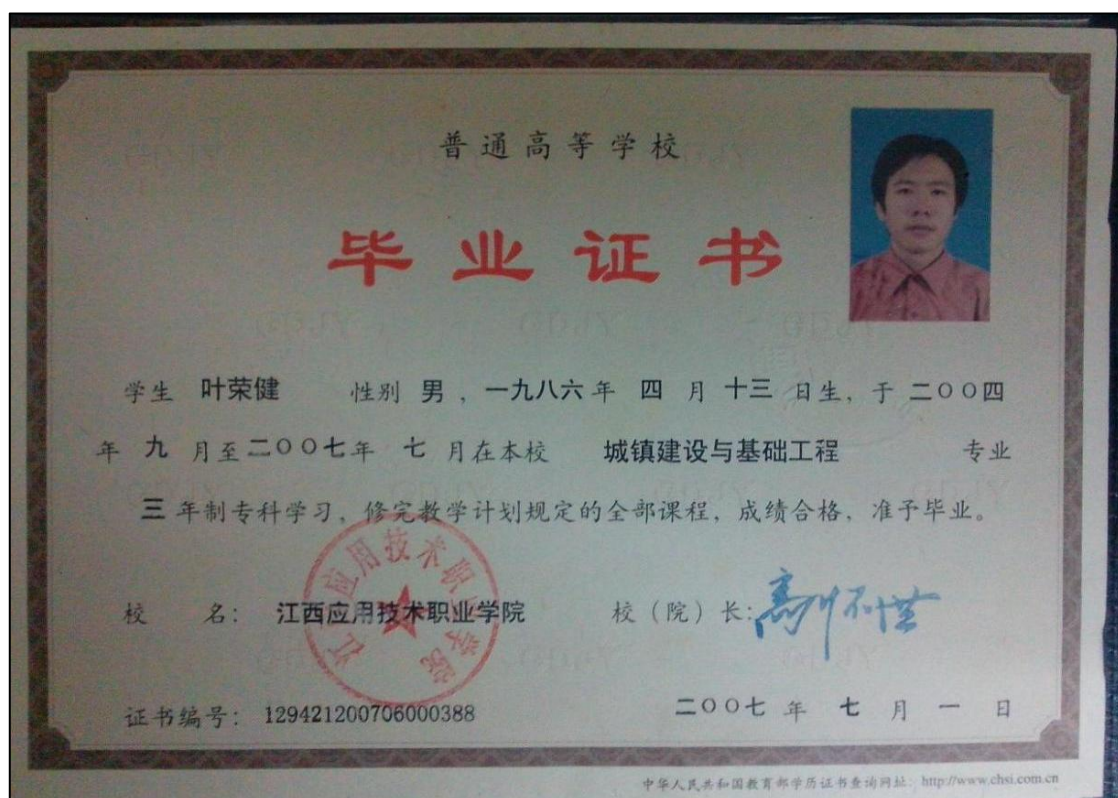 普通高等学校
毕业证书
学生 叶荣健 性别 男，一九八六年 四 月 十三 日生，于 二〇〇四
年 九 月至二〇〇七年 七 月在本校 城镇建设与基础工程 专业
三 年制专科学习，修完教学计划规定的全部课程，成绩合格，准予毕业。
校 名：江西应用技术职业学院 校（院）长：
江西应用技术职业学院
证书编号：129421200706000388 二〇〇七 年 七 月 一 日
中华人民共和国教育部学历证书查询网址：http://www.chsi.com.cn